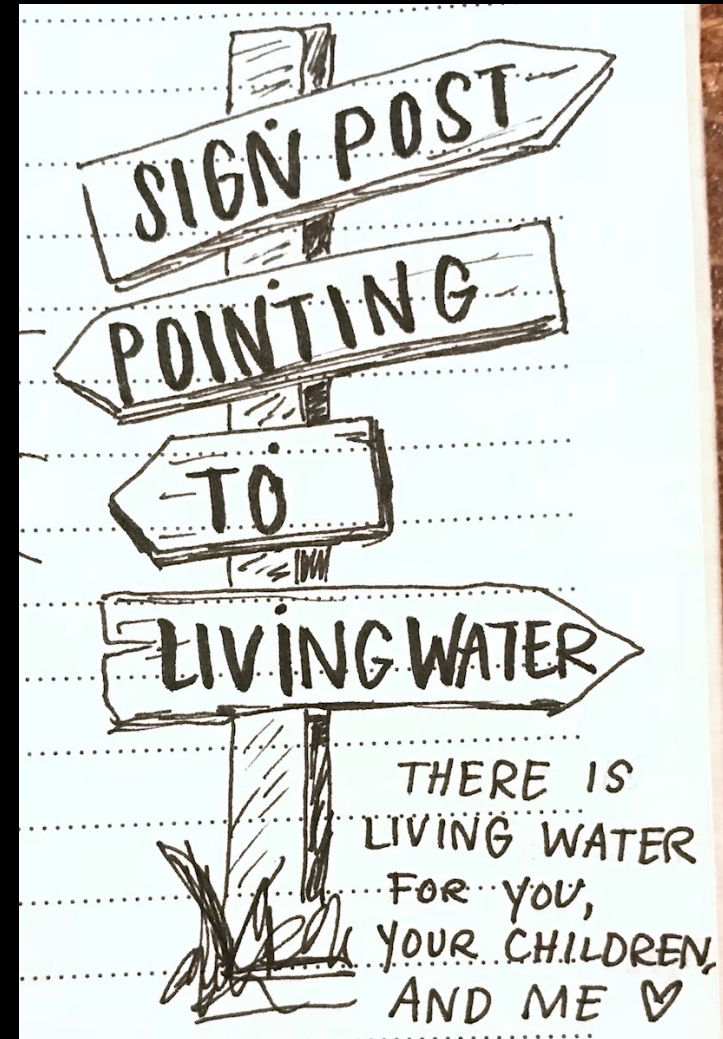 SIGN POST
POINTING
TO
LIVING WATER
THERE IS
LIVING WATER
FOR YOU,
YOUR CHILDREN,
AND ME ♡